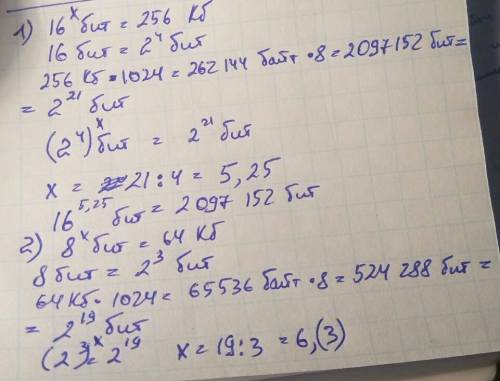 1) 16^x бит = 256 Кб
16 бит = 2^4 бит
256 Кб • 1024 = 262 144 байт • 8 = 2097 152 бит =
= 2^21 бит
(2^4)^x бит = 2^21 бит
x = 21 : 4 = 5,25
16^5,25 бит = 2 097 152 бит
2) 8^x бит = 64 Кб
8 бит = 2^3 бит
64 Кб • 1024 = 65536 байт • 8 = 524 288 бит =
= 2^19 бит
(2^3)^x = 2^19 x = 19 : 3 = 6,(3)